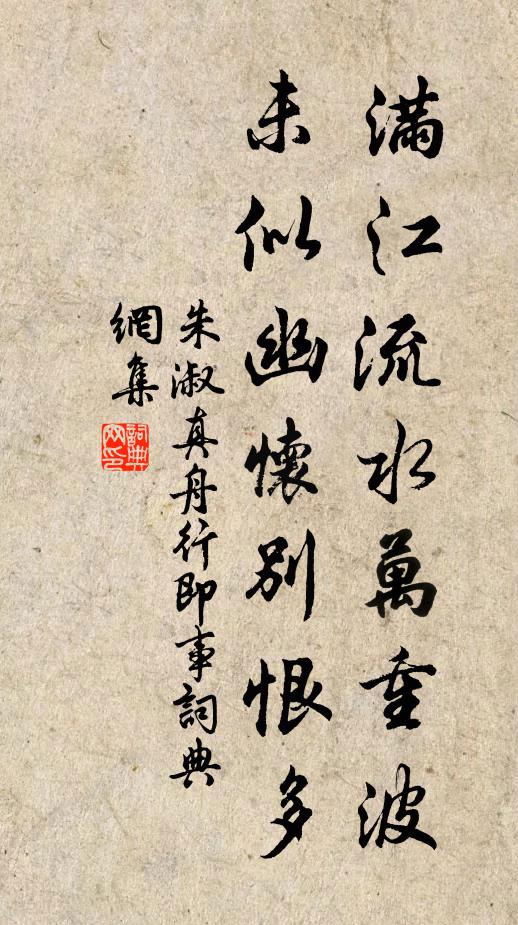 滿江流水萬重波
未似幽懷別恨多
朱淑真舟行即事詞典
網集
詞典
网印